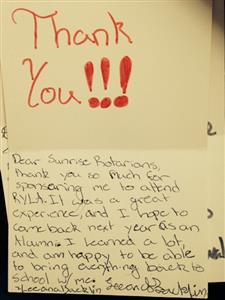 Thank
You!!!
Dear Sunrise Rotarians,
Thank you so much for
sponsoring me to attend
RYLA. It was a great
experience, and I hope to
come back next year as an
Alumni. I learned a lot,
and am happy to be able
to bring everything back to
school w/ me.